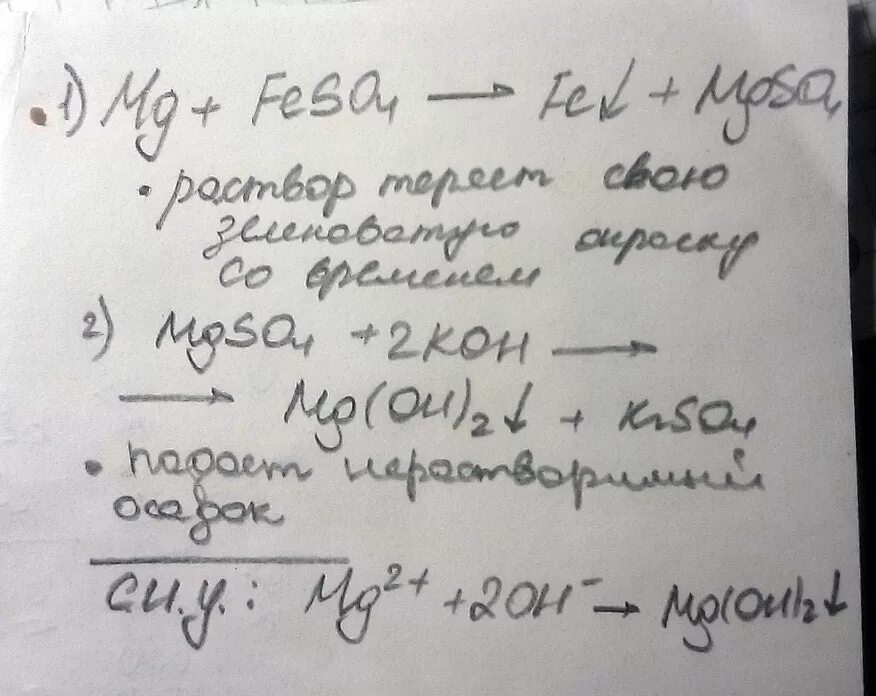 1) Mg + FeSO₄ → Fe↓ + MgSO₄
• раствор теряет свою
зеленоватую окраску
со временем
2) MgSO₄ + 2KOH →
→ Mg(OH)₂↓ + K₂SO₄
• падает нерастворимый
осадок
с.и.у.: Mg²⁺ + 2OH⁻ → Mg(OH)₂↓